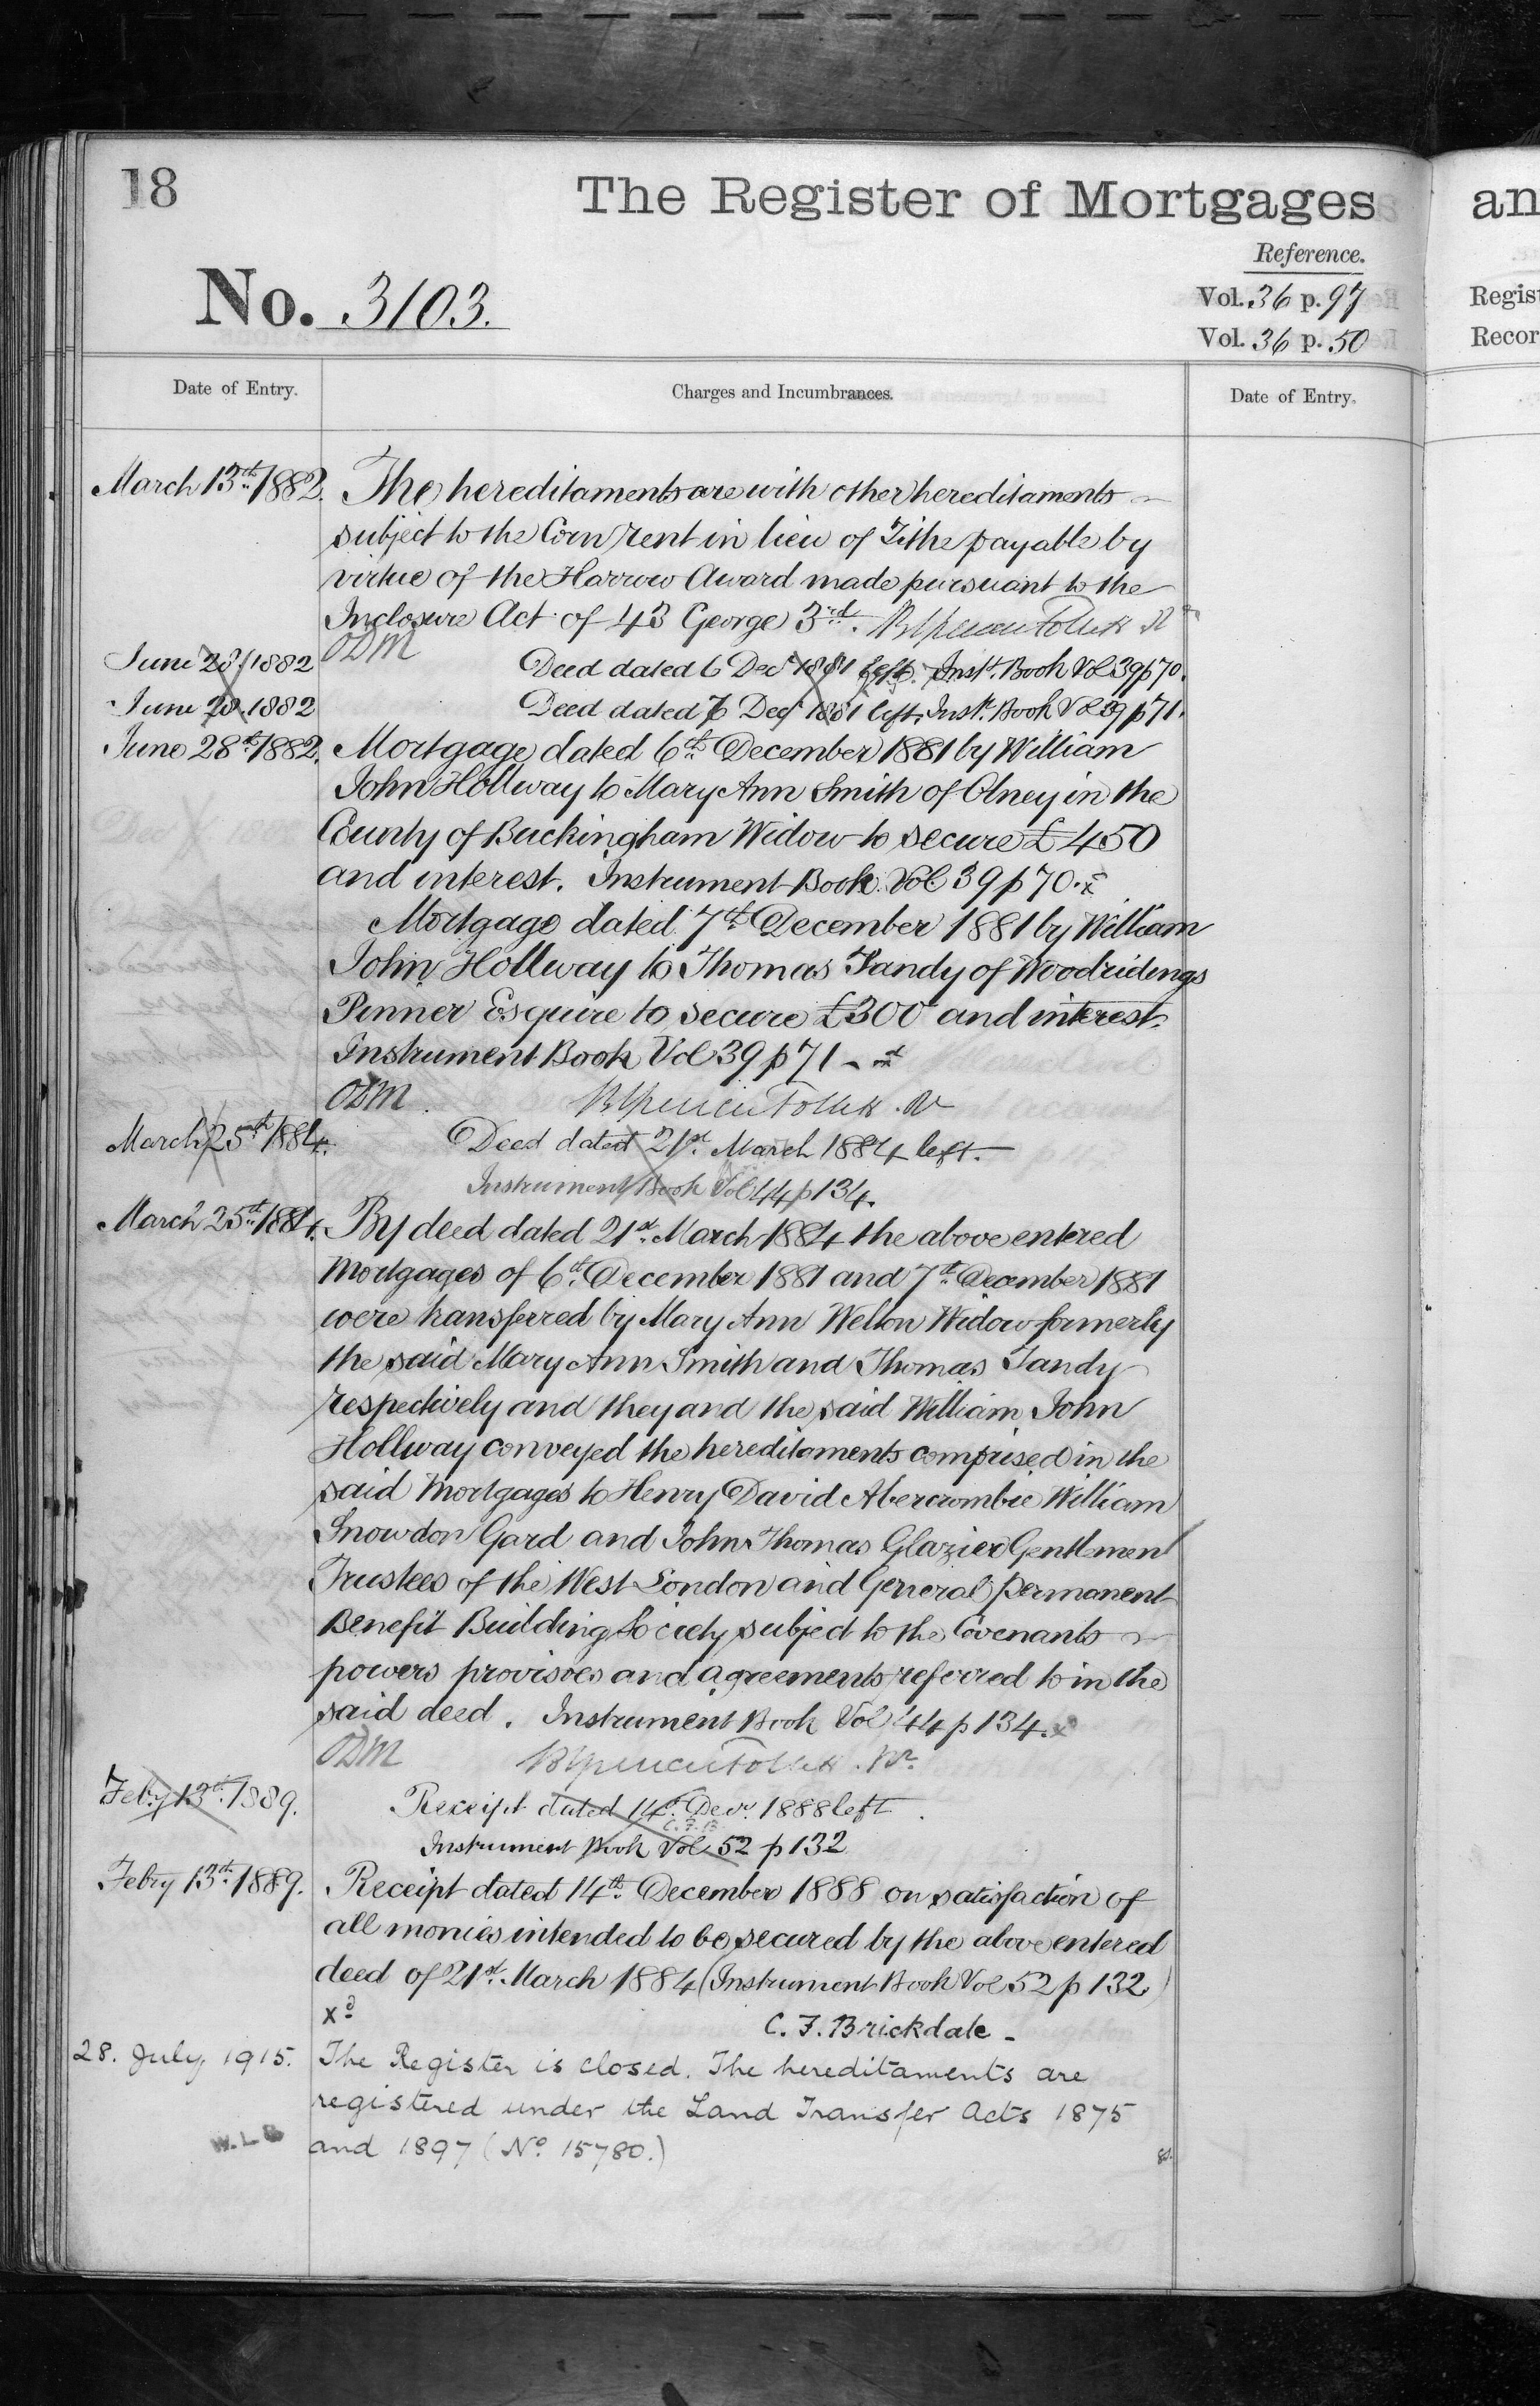 18
The Register of Mortgages
an
Reference.
No. 3103.
Vol. 36 p. 97
Vol. 36 p. 50
Regist
Recor
Date of Entry.
Charges and Incumbrances.
Date of Entry.
March 13th 1882. The hereditaments are with other hereditaments
subject to the Corn rent in lieu of Tithe payable by
virtue of the Harrow Award made pursuant to the
Inclosure Act of 43 George 3rd.
ODM
June 28 1882 Deed dated 6 Decr 1881 left. Inst. Book Vol 39 p 70.
June 28 1882 Deed dated 7 Decr 1881 left. Inst. Book Vol 39 p 71.
June 28th 1882. Mortgage dated 6th December 1881 by William
John Hollway to Mary Ann Smith of Olney in the
County of Buckingham Widow to secure £450
and interest. Instrument Book Vol. 39 p 70.
Mortgage dated 7th December 1881 by William
John Hollway to Thomas Tandy of Woodridings
Pinner Esquire to secure £300 and interest.
Instrument Book Vol 39 p 71
ODM
March 25th 1884. Deed dated 21st March 1884 left.
Instrument Book Vol 44 p 134.
March 25th 1884. By deed dated 21st March 1884 the above entered
Mortgages of 6th December 1881 and 7th December 1881
were transferred by Mary Ann Welton Widow formerly
the said Mary Ann Smith and Thomas Tandy
respectively and they and the said William John
Hollway conveyed the hereditaments comprised in the
said Mortgages to Henry David Abercrombie William
Snowdon Gard and John Thomas Glazier Gentlemen
Trustees of the West London and General Permanent
Benefit Building Society subject to the Covenants
powers provisoes and agreements referred to in the
said deed. Instrument Book Vol 44 p 134.
ODM
Feby 13th 1889. Receipt dated 14th Decr. 1888 left
C.F.B.
Instrument Book Vol 52 p 132
Feby 13th 1889. Receipt dated 14th December 1888 on satisfaction of
all monies intended to be secured by the above entered
deed of 21st March 1884 (Instrument Book Vol 52 p 132)
xd
C. F. Brickdale
28. July 1915. The Register is closed. The hereditaments are
registered under the Land Transfer Acts 1875
W.L.B and 1897 (No 15780.)